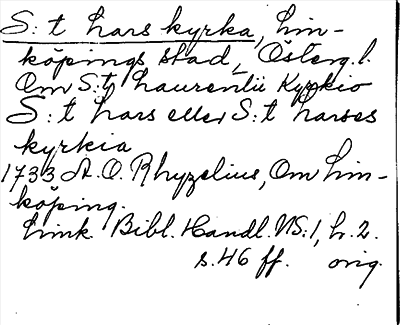 S:t Lars kyrka, Lin-
köpings stad, Österg.l.
Om S:t Laurentii Kyrkio
S:t Lars eller S:t Larses
kyrkia
1733 A.O. Rhyzelius, Om Lin-
köping.
Link. Bibl. Handl. NS:1, h.2.
s.46 ff. orig.